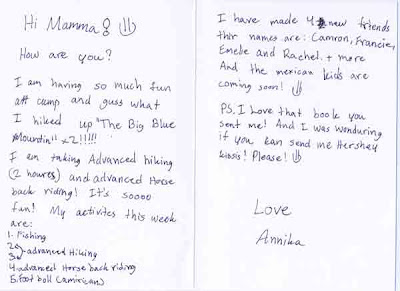 Hi Mamma!
How are you?
I am having so much fun
at camp and guss what
I hiked up "The Big Blue
Mountin" x2!!!!!
I am taking Advanced hiking
(2 houres) and advanced Horse
back riding! It's soooo
fun! My activites this week
are:
1. Fishing
2
3 -advanced Hiking
4. advanced Horse back riding
5. foot boll (amirican)
I have made 4 new friends
thir names are: Camron, Francie,
Emelie and Rachel. + more
And the mexican kids are
coming soon!
P.S. I Love that book you
sent me! And I was wonduring
if you kan send me Hershey
kissis! Please!
Love
Annika